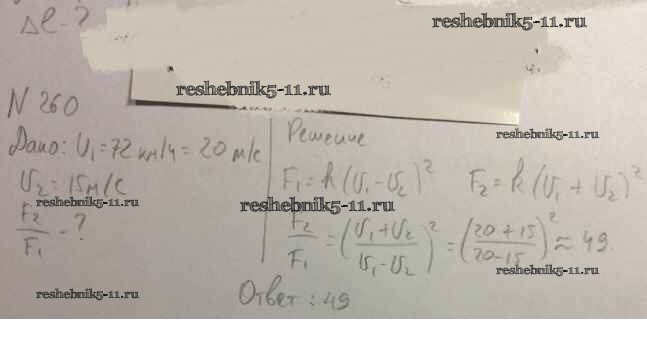 Δl - ?
reshebnik5-11.ru
reshebnik5-11.ru
N 260
Дано: U₁ = 72 км/ч = 20 м/с
U₂ = 15 м/с
F₂/F₁ - ?
Решение
reshebnik5-11.ru
F₁ = k (U₁ - U₂)² F₂ = k (U₁ + U₂)²
reshebnik5-11.ru
F₂/F₁ = ((U₁ + U₂)/(U₁ - U₂))² = ((20 + 15)/(20 - 15))² ≈ 49.
reshebnik5-11.ru
reshebnik5-11.ru
Ответ: 49